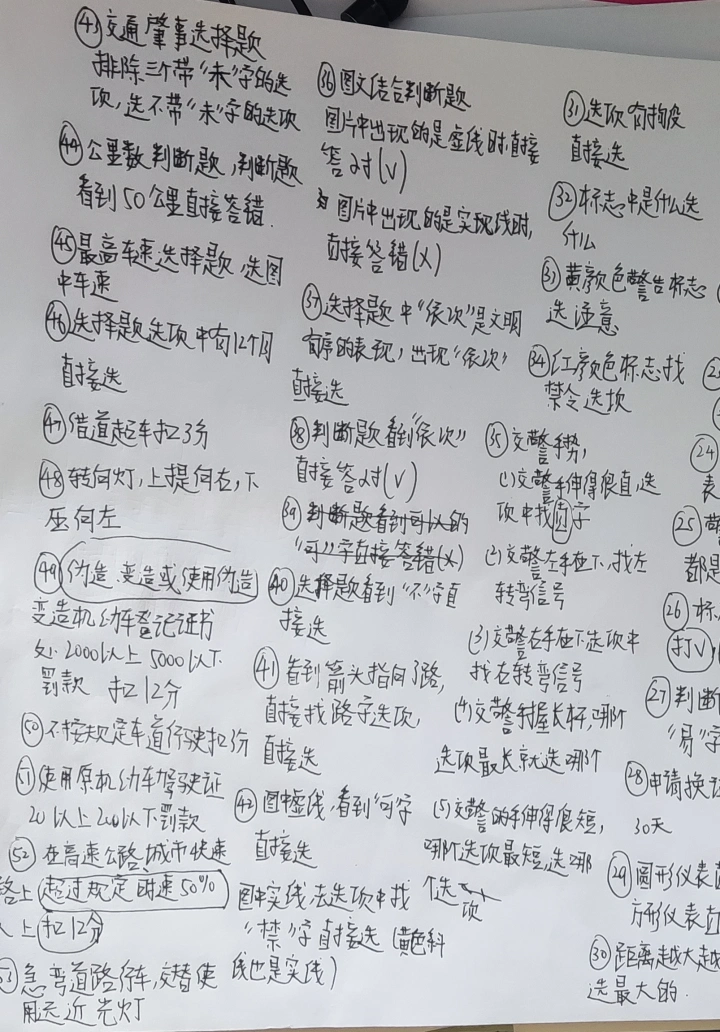 ㊸交通肇事选择题
排除三个带“未”字的选
项，选不带“未”字的选项
㊹公里数判断题，判断题
看到50公里直接答错.
㊺最高车速选择题，选图
中车速
㊻选择题选项中有12个月
直接选
㊼借道超车扣3分
㊽转向灯，上提向右，下
压向左
㊾伪造、变造或使用伪造
变造机动车登记证书
处2000以上5000以下
罚款 扣12分
㊿不按规定车道行驶扣3分
51使用原机动车驾驶证
20以上200以下罚款
52在高速公路、城市快速
路上超过规定时速50%
以上扣12分
53急弯道路行车，交替使
用远近光灯
㊱图文结合判断题
图片中出现的是虚线时，直接
答对(√)
图片中出现的是实现线时，
直接答错(X)
㊲选择题中“依次”是文明
有序的表现，出现“依次”
直接选
㊳判断题看到“依次”
直接答对(√)
㊴判断题看到可以的
“可以”字直接答错(X)
㊵选择题看到“不”字直
接选
㊶看到箭头指向了路，
直接找路字选项，
直接选
㊷图中虚线，看到“可”字
直接选
图中实线，去选项中找
“禁”字直接选（黄色斜
线也是实线）
㉛选项有拘役
直接选
㉜标志中是什么选
什么
㉝黄颜色警告标志
选注意
㉞红颜色标志找
禁令选项
㉟交警手势，
(1)交警手伸得很直，选
项中找直字
(2)交警左手在下，找左
转弯信号
(3)交警右手在下选项中
找右转弯信号
(4)交警手握长杆，哪个
选项最长就选哪个
(5)交警的手伸得很短，
哪个选项最短选哪
个选项
㉔
表
㉕
都是
㉖标
打√
㉗判断
“易”字
㉘申请换证
30天
㉙圆形仪表
方形仪表直
㉚距离越大越
选最大的.